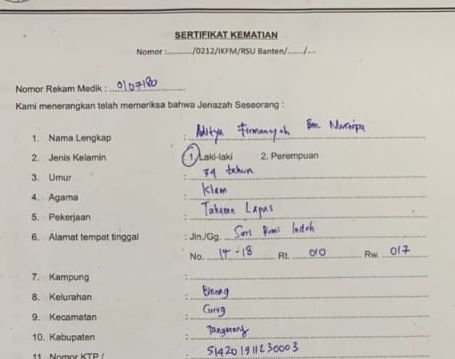 SERTIFIKAT KEMATIAN
Nomor :........../0212/IKFM/RSU Banten/....../....
Nomor Rekam Medik : 0107180
Kami menerangkan telah memeriksa bahwa Jenazah Seseorang :
1. Nama Lengkap : Aditya Firmansyah Bin
2. Jenis Kelamin : 1. Laki-laki 2. Perempuan
3. Umur : tahun
4. Agama : Islam
5. Pekerjaan : Tahanan Lapas
6. Alamat tempat tinggal : Jln./Gg. Sari Bumi Indah
No. 17-18 Rt. 010 Rw. 017
7. Kampung :
8. Kelurahan : Binong
9. Kecamatan : Curug
10. Kabupaten : Tangerang
11. Nomor KTP / : 514201911230003